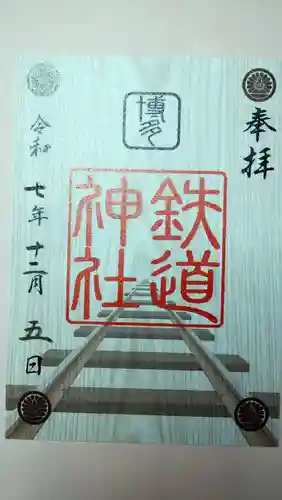 奉拝
博多
鉄道
神社
令和 七年 十二月 五日